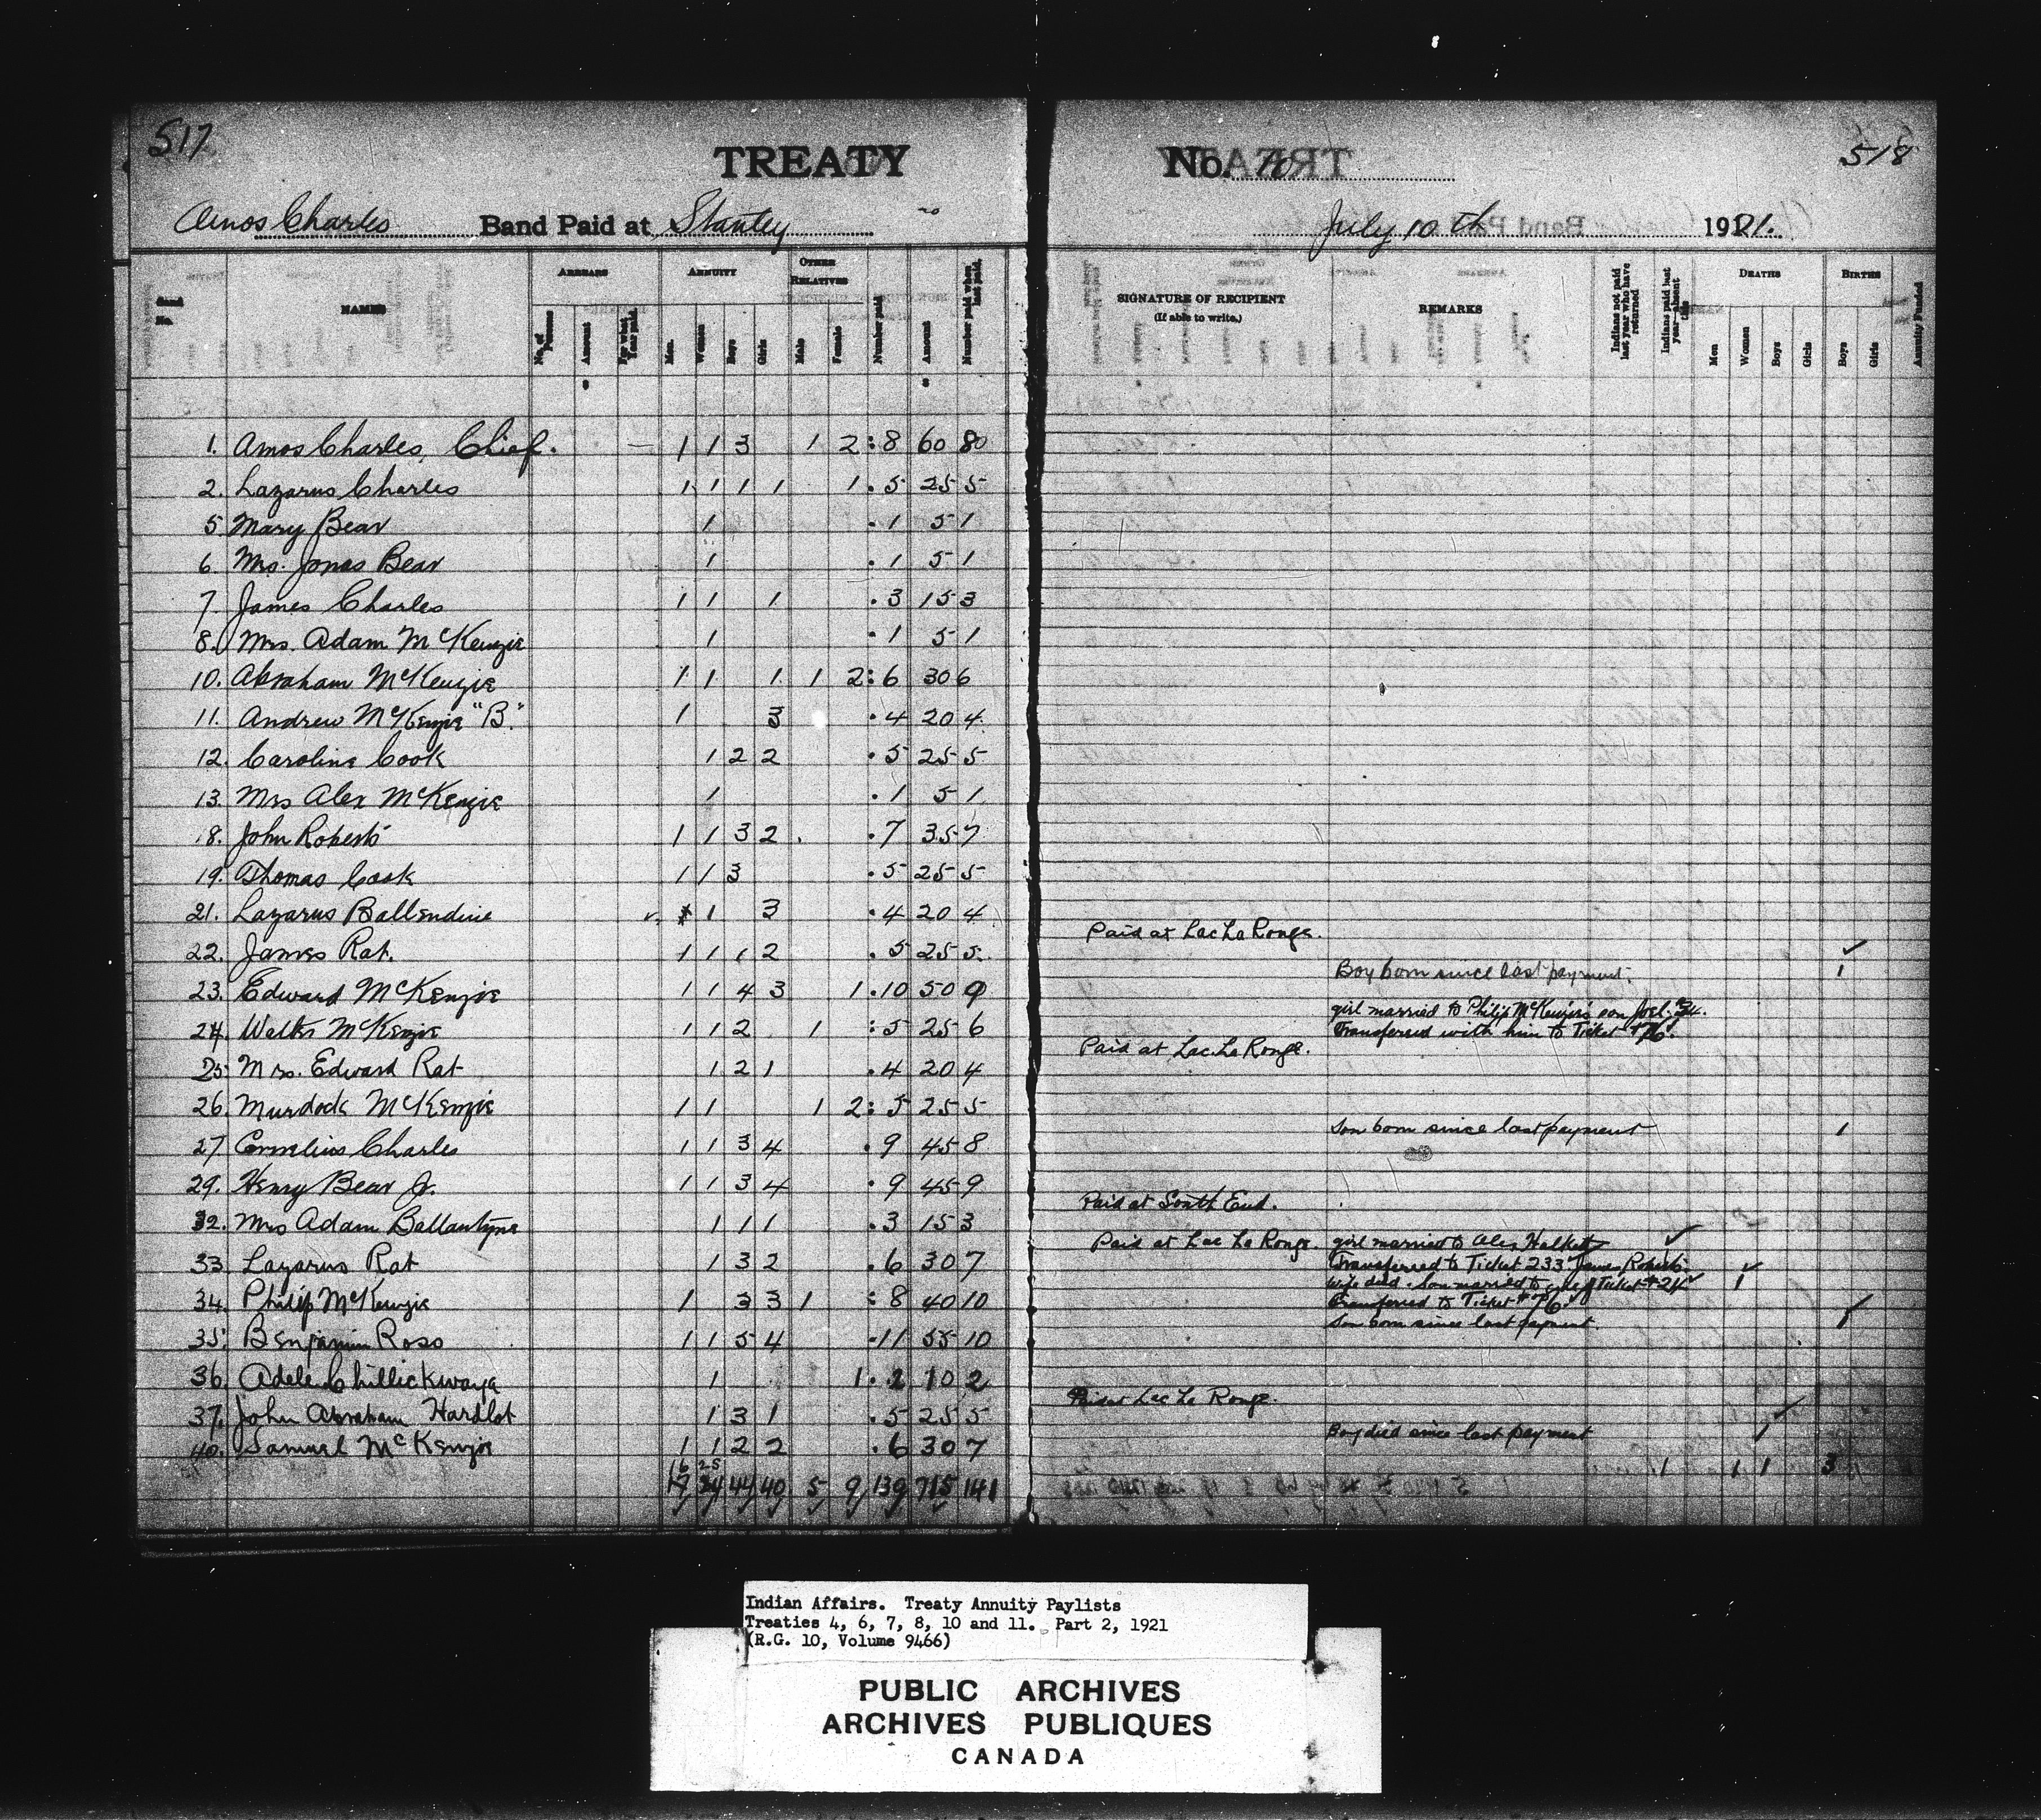 517
TREATY No. 10
518
Amos Charles Band Paid at Stanley July 10th 1921.
Band No.
NAMES
ARREARS
No. of Persons
Amount
For what Year paid.
ANNUITY
Men.
Women
Boys
Girls
OTHER RELATIVES
Male
Female
Number paid
Amount
Number paid when last paid.
SIGNATURE OF RECIPIENT
(If able to write.)
REMARKS
Indians not paid last year who have returned
Indians paid last year—absent this
DEATHS
Men
Women
Boys
Girls
BIRTHS
Boys
Girls
Annuity Funded
1. Amos Charles, Chief. — 1 1 3 1 2 : 8 60 80
2. Lazarus Charles 1 1 1 1 1 . 5 25 5
5 Mary Bear 1 . 1 5 1
6. Mrs. Jonas Bear 1 . 1 5 1
7. James Charles 1 1 1 . 3 15 3
8. Mrs. Adam McKenzie 1 . 1 5 1
10. Abraham McKenzie 1 1 1 1 2 : 6 30 6
11. Andrew McKenzie "B." 1 3 . 4 20 4
12. Caroline Cook 1 2 2 . 5 25 5
13. Mrs Alex McKenzie 1 . 1 5 1
18. John Roberts 1 1 3 2 . 7 35 7
19. Thomas Cook 1 1 3 . 5 25 5
21. Lazarus Ballendine 1 3 . 4 20 4
Paid at Lac La Ronge.
22. James Rat. 1 1 1 2 . 5 25 5
Boy born since last payment. 1
23. Edward McKenzie 1 1 4 3 1 . 10 50 9
girl married to Philip McKenzie's son Joel. #34.
24. Walter McKenzie 1 1 2 1 : 5 25 6
Transferred with him to Ticket #76.
Paid at Lac La Ronge.
25. Mrs. Edward Rat 1 2 1 . 4 20 4
26. Murdock McKenzie 1 1 1 2 : 5 25 5
Son born since last payment 1
27 Cornelius Charles 1 1 3 4 . 9 45 8
29. Henry Bear Jr. 1 1 3 4 . 9 45 9
Paid at South End.
32. Mrs Adam Ballantyne 1 1 1 . 3 15 3
Paid at Lac La Ronge. girl married to Alex Halkett
33. Lazarus Rat 1 3 2 . 6 30 7
Transferred to Ticket 233 James Roberts
Wife died. Son married to girl of Ticket #24 1
34. Philip McKenzie 1 3 3 1 : 8 40 10
Transferred to Ticket #76.
Son born since last payment. 1
35. Benjamin Ross 1 1 5 4 . 11 55 10
36. Adele Chillickwaya 1 1 . 2 10 2
Paid at Lac La Ronge.
37. John Abraham Hardlot 1 3 1 . 5 25 5
Boy died since last payment 1
40. Samuel McKenzie 1 1 2 2 . 6 30 7
1 1 1 3
16 25
17 24 44 40 5 9 139 715 141
Indian Affairs. Treaty Annuity Paylists
Treaties 4, 6, 7, 8, 10 and 11. Part 2, 1921
(R.G. 10, Volume 9466)
PUBLIC ARCHIVES
ARCHIVES PUBLIQUES
CANADA